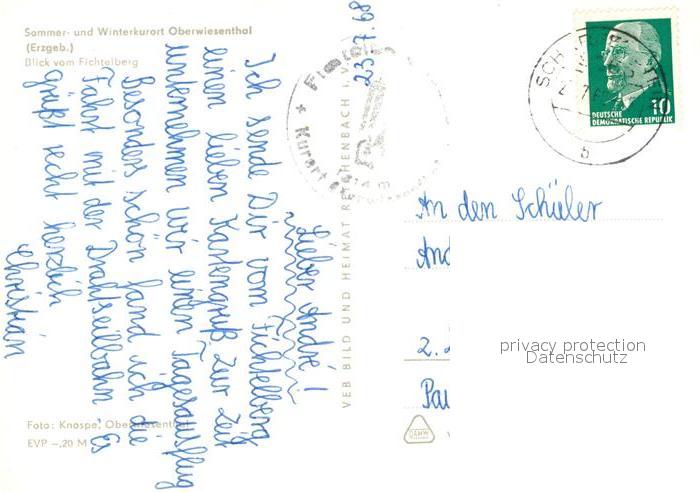 Sommer- und Winterkurort Oberwiesenthal
(Erzgeb.)
Blick vom Fichtelberg
23.7.68
Lieber André!
Ich sende Dir vom Fichtelberg
einen lieben Kartengruß. Zur Zeit
unternehmen wir einen Tagesausflug.
Besonders schön fand ich die
Fahrt mit der Drahtseilbahn. Es
grüßt recht herzlich
Christian
Foto: Knospe, Oberwiesenthal
EVP -,20 M
VEB BILD UND HEIMAT REICHENBACH I. V.
Kurort
10
DEUTSCHE
DEMOKRATISCHE REPUBLIK
An den Schüler
And
2.
Pau
privacy protection
Datenschutz